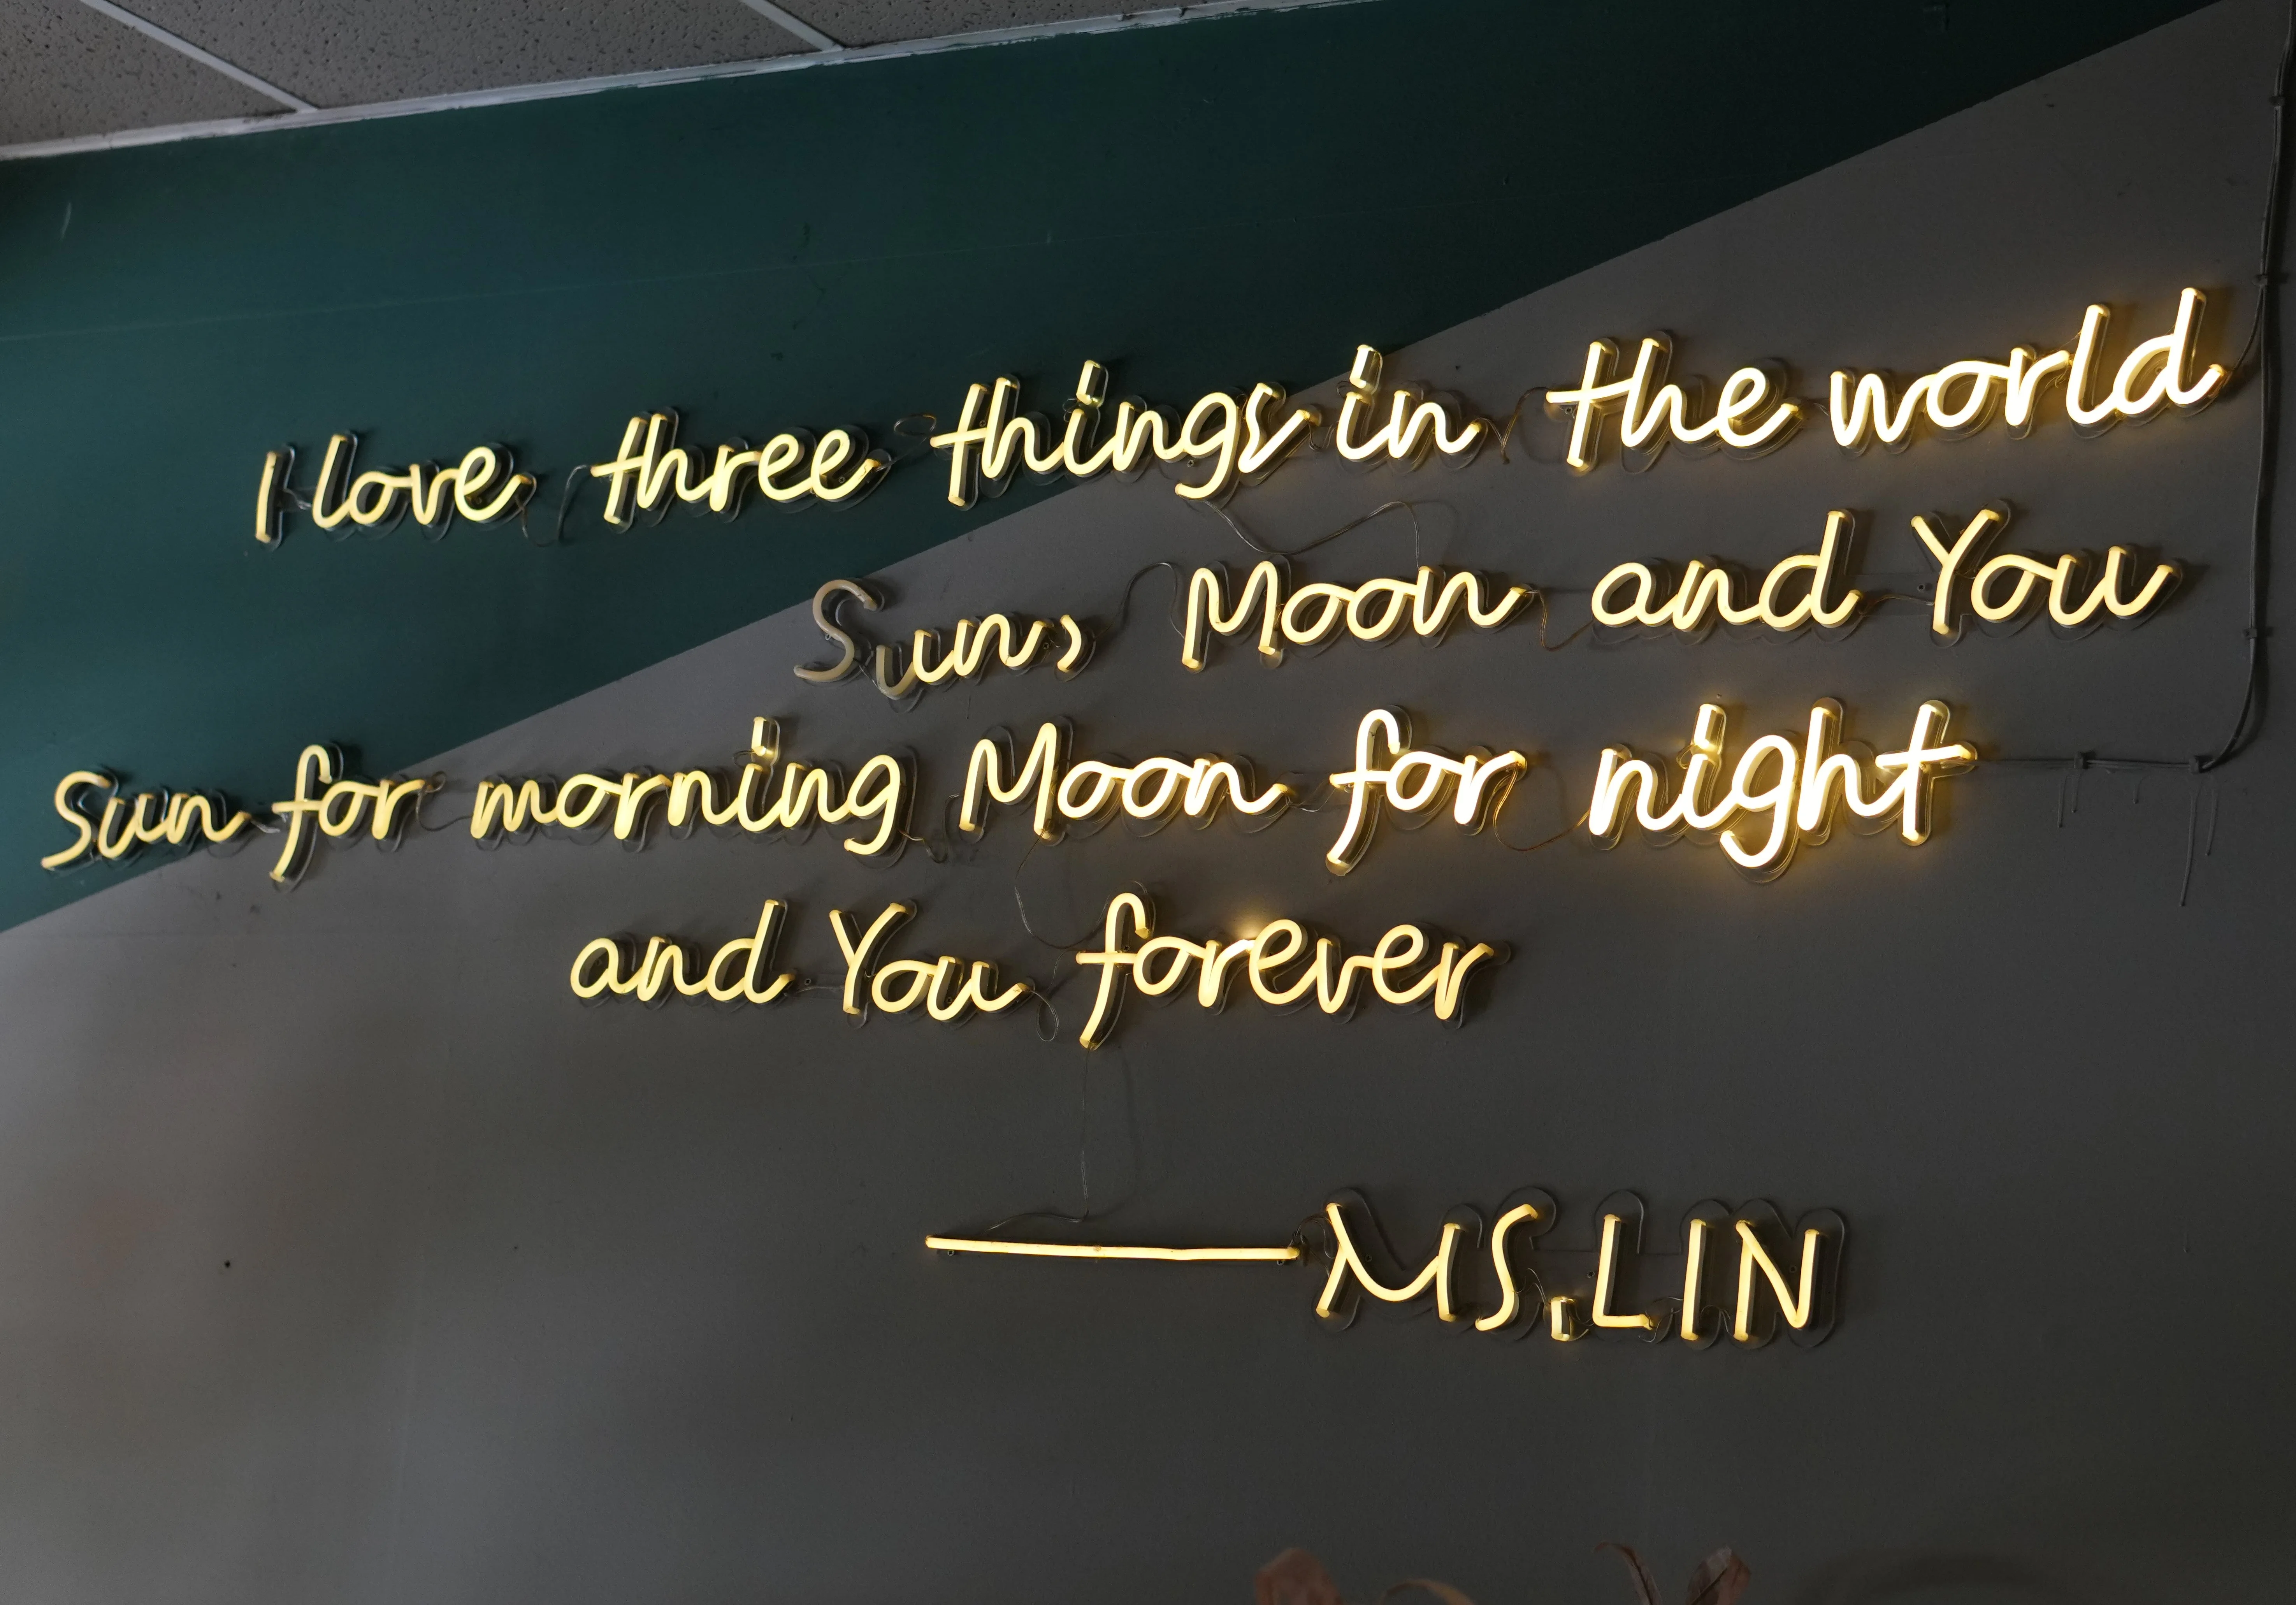 I love three things in the world
Sun, Moon and You
Sun for morning Moon for night
and You forever
—MS.LIN